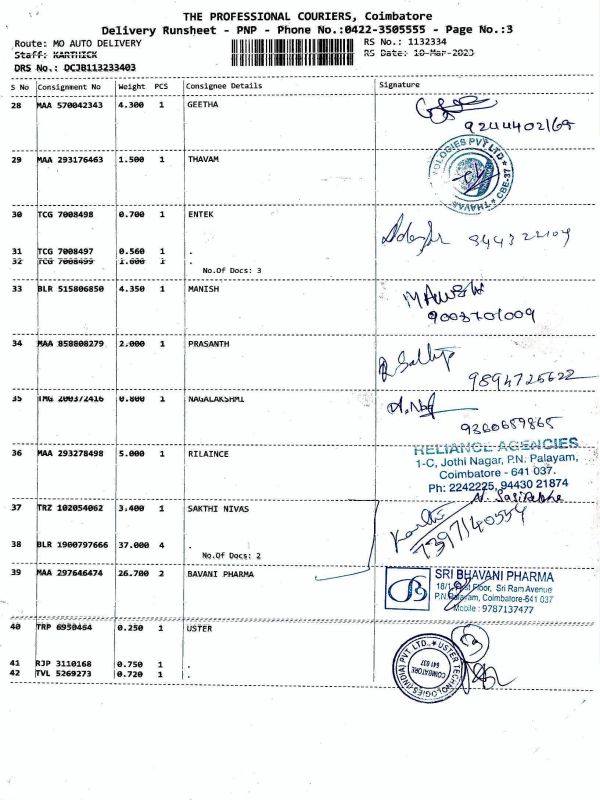 THE PROFESSIONAL COURIERS, Coimbatore
Delivery Runsheet - PNP - Phone No.:0422-3505555 - Page No.:3
Route: MO AUTO DELIVERY RS No.: 1132334
Staff: KARTHICK RS Date: 10-Mar-2023
DRS No.: DCJB113233403
S No Consignment No Weight PCS Consignee Details Signature
28 MAA 570042343 4.300 1 GEETHA
9244402169
29 MAA 293176463 1.500 1 THAVAM
OLOGIES PVT LTD * CBE-37 * THAVAM
30 TCG 7008498 0.700 1 ENTEK
31 TCG 7008497 0.560 1 .
32 TCG 7008499 1.600 1 .
No.Of Docs: 3
33 BLR 515806850 4.350 1 MANISH
9003701009
34 MAA 858808279 2.000 1 PRASANTH
9894725622
35 TMG 200372416 0.800 1 NAGALAKSHMI
9360659865
36 MAA 293278498 5.000 1 RILAINCE
RELIANCE AGENCIES
1-C, Jothi Nagar, P.N. Palayam,
Coimbatore - 641 037.
Ph: 2242225, 94430 21874
37 TRZ 102054062 3.400 1 SAKTHI NIVAS
7397140554
38 BLR 1900797666 37.000 4 .
No.Of Docs: 2
39 MAA 297646474 26.700 2 BAVANI PHARMA
SRI BHAVANI PHARMA
18/1, First Floor, Sri Ram Avenue
P.N.Palayam, Coimbatore-641 037
Mobile : 9787137477
40 TRP 6950464 0.250 1 USTER
41 RJP 3110168 0.750 1 .
42 TVL 5269273 0.720 1 .
USTER TECHNOLOGIES (INDIA) PVT LTD.,
COIMBATORE
641 037